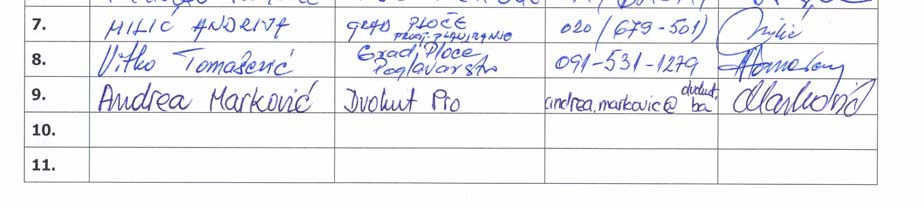 7. MILIĆ ANDRIJA GRAD PLOČE PROST. PLANIRANJE 020/679-501 Milić
8. Vitko Tomašević Grad Ploče Poglavarstvo 091-531-1279
9. Andrea Marković Dvokut Pro andrea.markovic@dvokut.ba Marković
10.
11.